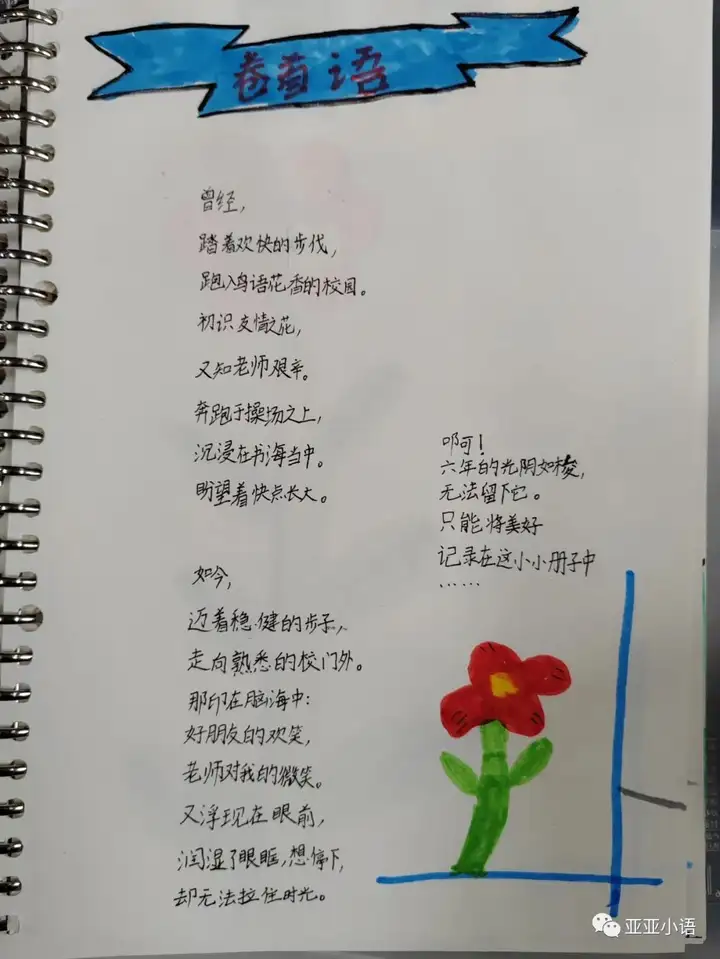 卷首语
曾经，
踏着欢快的步伐，
跑入鸟语花香的校园。
初识友情之花，
又知老师艰辛。
奔跑于操场之上，
沉浸在书海当中。
盼望着快点长大。
如今，
迈着稳健的步子，
走向熟悉的校门外。
那印在脑海中：
好朋友的欢笑，
老师对我的微笑。
又浮现在眼前，
润湿了眼眶，想停下，
却无法拉住时光。
啊！
六年的光阴如梭，
无法留下它。
只能将美好
记录在这小小册子中
……
亚亚小语